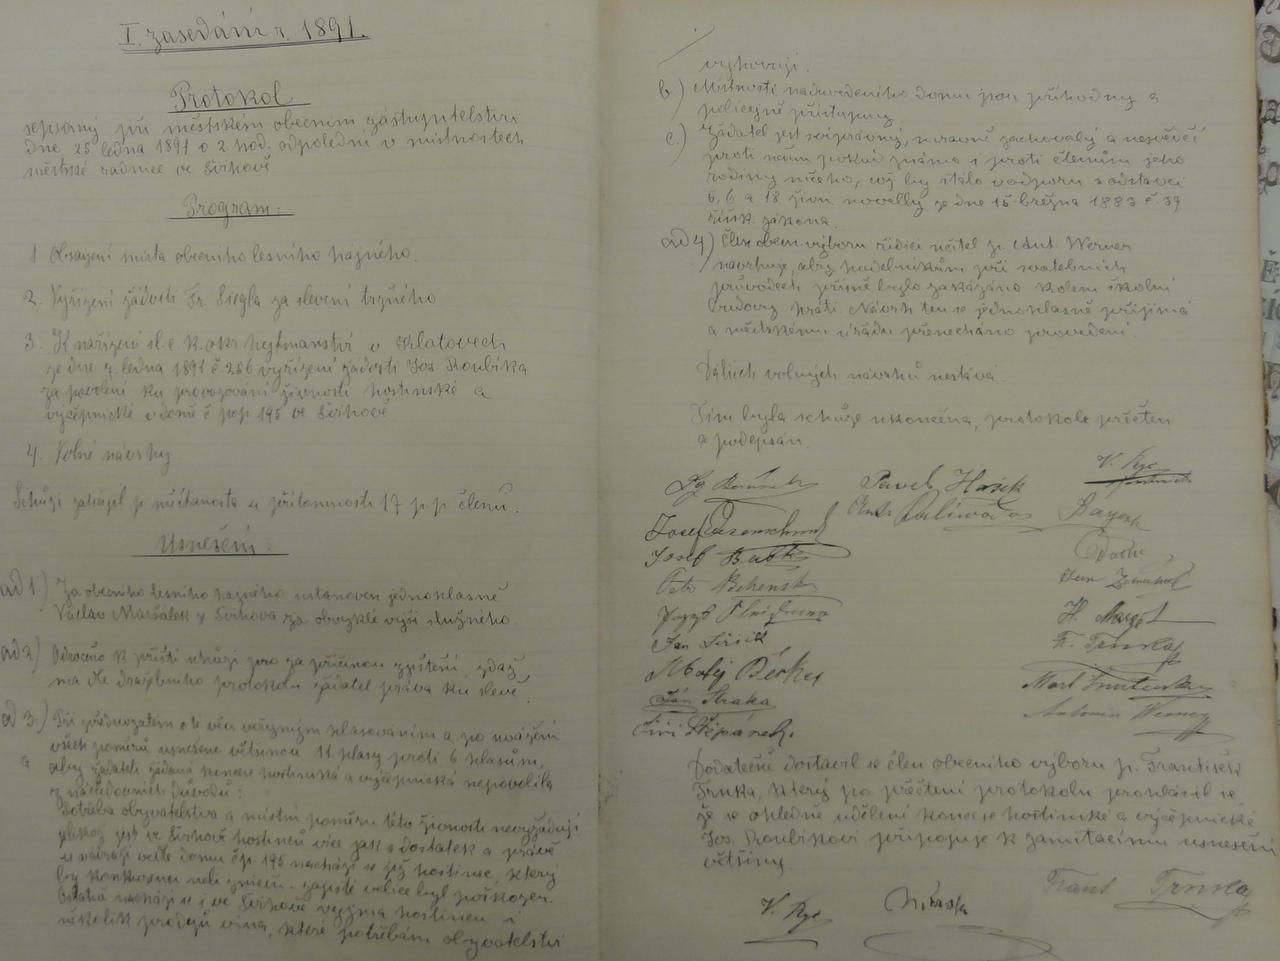 I. zasedání r. 1891.
Protokol
sepsaný při městském obecním zástupitelstvu
dne 25 ledna 1891 o 2 hod. odpolední v místnostech
městské radnice ve Švihově
Program.
1. Obsazení místa obecního lesního hajného.
2. Vyřízení žádosti Fr. Siegla za slevení tržného
3. K nařízení sl. c. k. okr. hejtmanství v Klatovech
ze dne 7. ledna 1891 č. 256 vyřízení žádosti Jos. Roubíka
za povolení ku provozování živnosti hostinské a
výčepnické v domě č pop 195 ve Švihově
4. Volné návrhy
Schůzi zahájil p. měšťanosta u přítomnosti 17 p. p. členů.
Usnešení.
ad 1.) Za obecního lesního hajného ustanoven jednohlasně
Václav Maršálek z Švihova za obvyklé výši služného.
ad 2) Odročeno k příští schůzi pro za příčinou zjištění, zdaž
má dle dražebního protokolu žadatel práva ku slevě
ad 3.) Při předevzatém o té věci veřejným hlasováním a po uvážení
všech poměrů usneseno většinou 11 hlasy proti 6 hlasům,
aby žadateli žádaná koncese hostinská a výčepnická nepovolila
z následovních důvodů:
a Potřeba obyvatelstva a místní poměry této živnosti nevyžadují
jelikož jest ve Švihově hostinců více jak s dostatek a právě
u nádraží vedle domu čp. 195 nachází se již hostinec, který
by konkurencí velice byl poškozen.
Ostatně nachází se i ve Švihově vyjma hostinců i
několik prodejů vína, které potřebám obyvatelstva
vyhovují.
b.) Místnosti nadzvedeného domu jsou příhodny a
policejně přístupny.
c.) Žadatel jest svéprávný, mravně zachovalý a nesvědčí
proti němu pokud známo i proti členům jeho
rodiny ničeho, což by stálo v odporu s odstavci
5, 6 a 18 živn. novelly ze dne 15. března 1883 č. 39
říšk. zákona.
ad 4) Člen obec. výboru řídící učitel p. Ant. Werner
navrhuje, aby hudebníkům při svatebních
průvodech přísně bylo zakázáno kolem školní
budovy hráti. Návrh ten se jednohlasně přijímá
a městskému úřadu přenecháno provedení.
Dalších volných návrhů nestává.
Tím byla schůze ukončena, protokol přečten
a podepsán.
Pavel Hašek
V. Ryc
Josef
Josef
Petr
Jan
Matěj
Jan Straka
Jiří Štěpánek
F. Trnka
Antonín Werner
Dodatečně dostavil se člen obecního výboru p. František
Trnka, který po přečtení protokolu prohlásil se,
že se ohledně udělení koncese hostinské a výčepnické
Jos. Roubíkovi připojuje k zamítacímu usnesení
většiny.
Frant Trnka
V. Ryc